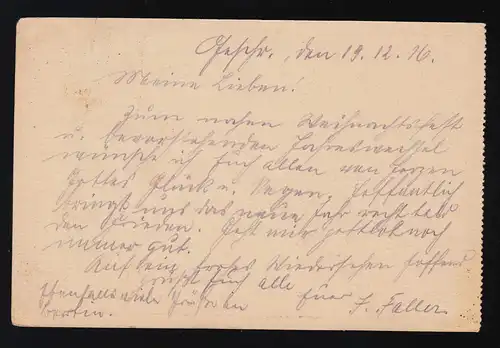 Geschr., den 19.12.16.
Meine Lieben!
Zum nahen Weihnachtsfest
u. bevorstehenden Jahreswechsel
wünsche ich Euch allen von Herzen
Gottes Glück u. Segen, hoffentlich
bringt uns das neue Jahr recht bald
den Frieden. Geht mir gottlob noch
immer gut.
Auf ein frohes Wiedersehen hoffend
grüßt Euch alle
Ebenfalls viele Grüße an Euer J. Faller